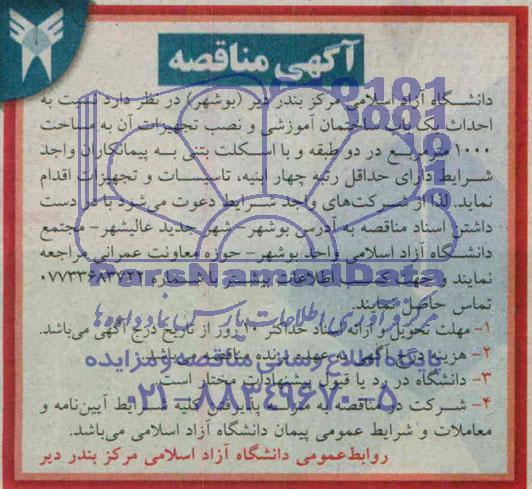 آگهی مناقصه
دانشگاه آزاد اسلامی مرکز بندر دیر (بوشهر) در نظر دارد نسبت به
احداث یک باب ساختمان آموزشی و نصب تجهیزات آن به مساحت
۱۰۰۰ مترمربع در دو طبقه و با اسکلت بتنی به پیمانکاران واجد
شرایط دارای حداقل رتبه چهار ابنیه، تاسیسات و تجهیزات اقدام
نماید. لذا از شرکت‌های واجد شرایط دعوت می‌شود با در دست
داشتن اسناد مناقصه به آدرس بوشهر- شهر جدید عالیشهر- مجتمع
دانشگاه آزاد اسلامی واحد بوشهر- حوزه معاونت عمرانی مراجعه
نمایند و جهت کسب اطلاعات بیشتر با شماره
تماس حاصل نمایند.
۱- مهلت تحویل و ارائه اسناد حداکثر روز از تاریخ درج آگهی می‌باشد.
۲- هزینه درج آگهی به عهده برنده مناقصه می‌باشد.
۳- دانشگاه در رد یا قبول پیشنهادات مختار است.
۴- شرکت در مناقصه به منزله پذیرفتن کلیه شرایط آیین‌نامه و
معاملات و شرایط عمومی پیمان دانشگاه آزاد اسلامی می‌باشد.
روابط‌عمومی دانشگاه آزاد اسلامی مرکز بندر دیر
ParsNamadData
مرکز فرآوری اطلاعات پارس نماد داده‌ها
پایگاه اطلاع رسانی مناقصه و مزایده
۰۲۱-۸۸۳۴۹۶۷۰-۵